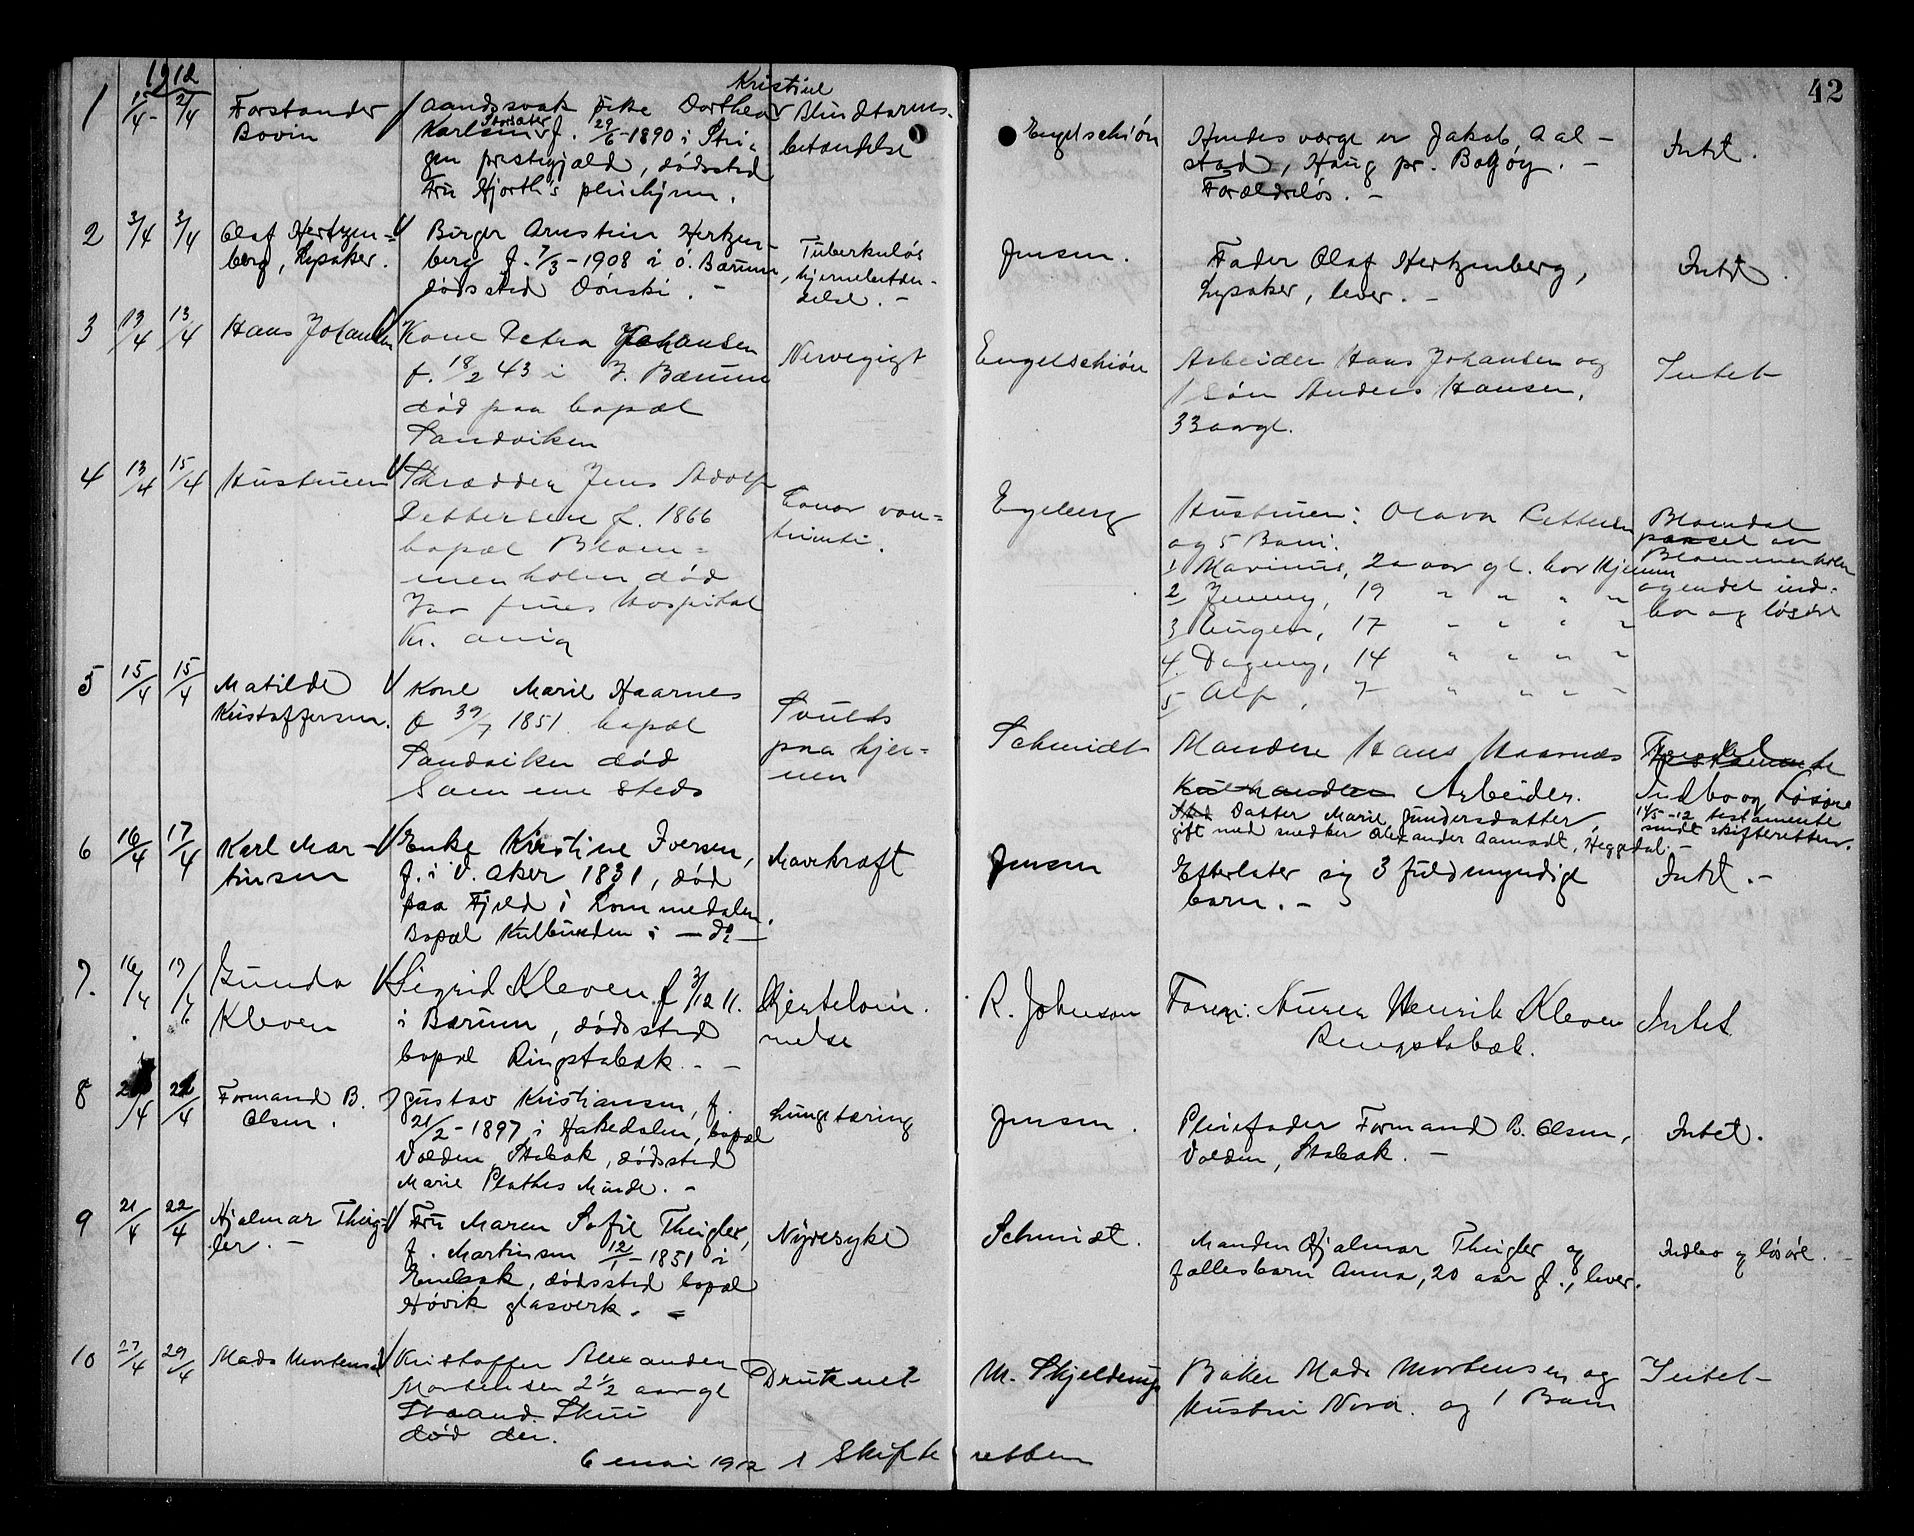 42
1912
1 1/4 - 2/4 Forstander Bovin
Kristine
aandssvak pike Dorthea
Karlsen f. 29/6-1890 i
prestegjæld, dødssted
Fru Hjorth's pleiehjem.
Blindtarms-
betændelse
Engelschiøn
Hendes værge er Jakob Aal-
stad, Haug pr. Bogøy. -
Forældreløs. -
Intet.
2 3/4 3/4 Olaf Hertzen-
berg, Lysaker.
Birger Arnstein Hertzen-
berg f. 7/3-1908 i ø. Bærum,
dødssted Dønski. -
Tuberkuløs
hjernebetæn-
delse. -
Jensen.
Fader Olaf Hertzenberg,
Lysaker, lever. -
Intet.
3 13/4 13/4 Hans Johansen
Kone Petra Johansen
f. 18/2 43 i V. Bærum
død paa bopæl
Sandviken
Nervegigt
Engelschiøn
Arbeider Hans Johansen og
1 søn Anders Hansen,
33 aar gl.
Intet
4 13/4 15/4 Hustruen
Skrædder Jens Adolf
Pettersen f. 1866
bopæl Blom-
menholm død
Vor frues Hospital
Kr. ania
Cancer ven-
triculi.
Engeberg
Hustruen: Olava Pettersen
og 5 Barn:
1 Marinus, 20 aar gl. bor Hjemme
2 Jenny, 19 " " " "
3 Eugen, 17 " " " "
4 Dagny, 14 " " " "
5 Alf, 7 " " " "
Blomdal
parcel av
Blommenholm
og endel ind-
bo og løsøre
5 15/4 15/4 Matilde
Kristoffersen.
Kone Marie Haarnes
f 30/7 1851 bopæl
Sandviken død
Sammesteds
Svulst
paa hjer-
nen
Schmidt
Manden Hans Haarnes
Arbeider.
Datter Marie Gundersdatter,
gift med snedker Alexander Aamodt, Heggedal. -
Indbo og Løsøre
14/5-12 testamente
sendt skifteretten.
6 16/4 17/4 Karl Mar-
tinsen
Enke Kristine Iversen,
f. i V. Aker 1831, død
paa Fjeld i Lommedalen.
Bopæl Kulbunden i - do -
Mavekræft
Jensen
Efterlater sig 3 fuldmyndige
barn. -
Intet. -
7. 16/4 17/4 Gunda
Kleven
Sigrid Kleven f 3/12 11.
i Bærum, dødssted
bopæl Ringstabæk. -
Hjertelam-
melse
R. Johnson
Murer Henrik Kleven
Ringstabæk.
Intet
8 /4 22/4 Formand B.
Olsen.
Gustav Kristiansen, f.
21/2-1897 i Hakedalen, bopæl
Volden, Stabæk, dødssted
Marie Plathes Minde. -
Lungetæring
Jensen.
Pleiefader Formand B. Olsen,
Volden, Stabæk. -
Intet.
9 21/4 22/4 Hjalmar Thing-
ler. -
Fru Maren Sofie Thingler,
f. Martinsen 12/1-1851 i
Enebak, dødssted bopæl
Høvik glasverk. -
Nyresyke
Schmidt.
Manden Hjalmar Thingler og
fællesbarn Anna, 20 aar g., lever.
Indbo og løsøre. -
10 27/4 29/4 Mads Mortensen
Kristoffer Alexander
Mortensen 2 1/2 aar gl
Braand. Skui
død der.
Druknet
M. Skjelderup
Baker Mads Mortensen og
Hustru Nora. og 1 Barn
Intet
6 mai 1912 i Skifteretten